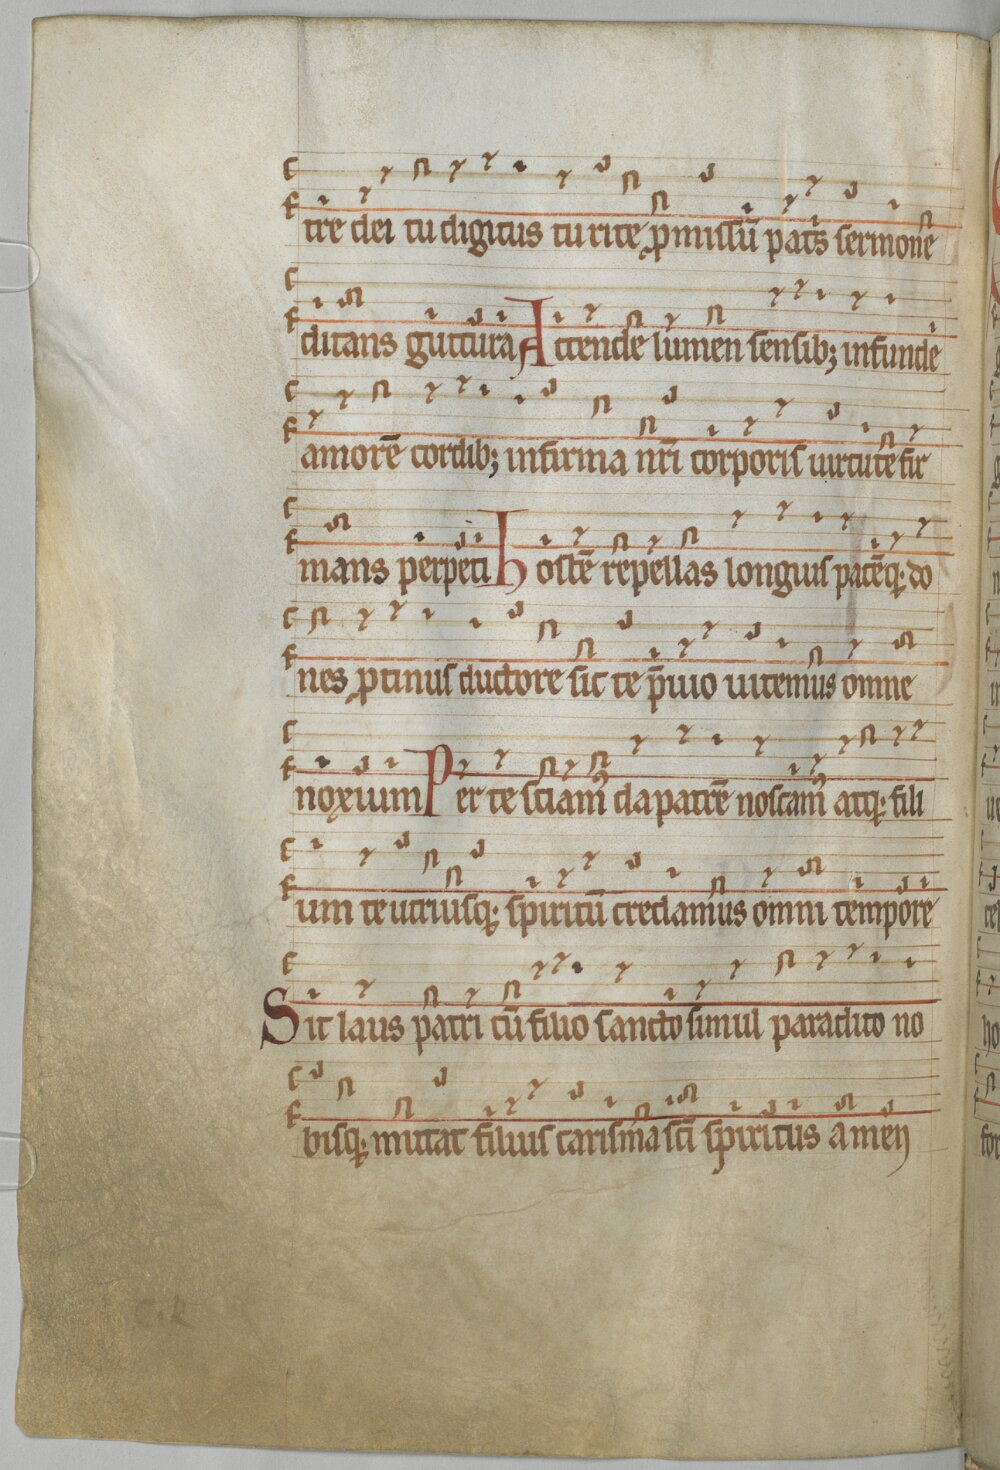 tre dei tu digitus tu rite ꝓmissū pat͛s sermone
ditans guttura Attende lumen sensib; infunde
amorē cordib; infirma nr̄i corporis uirtute fir
mans perpeti Hostē repellas longius pacēq; do
nes ꝓtinus ductore sic te p̄uio uitemus omne
noxium Per te sciam᷒ da patrē noscam᷒ atq; fili
um te utriusq; spiritū credamus omni tempore
Sit laus patri cū filio sancto simul paraclito no
bisq; mittat filius carisma sc̄i spiritus amen